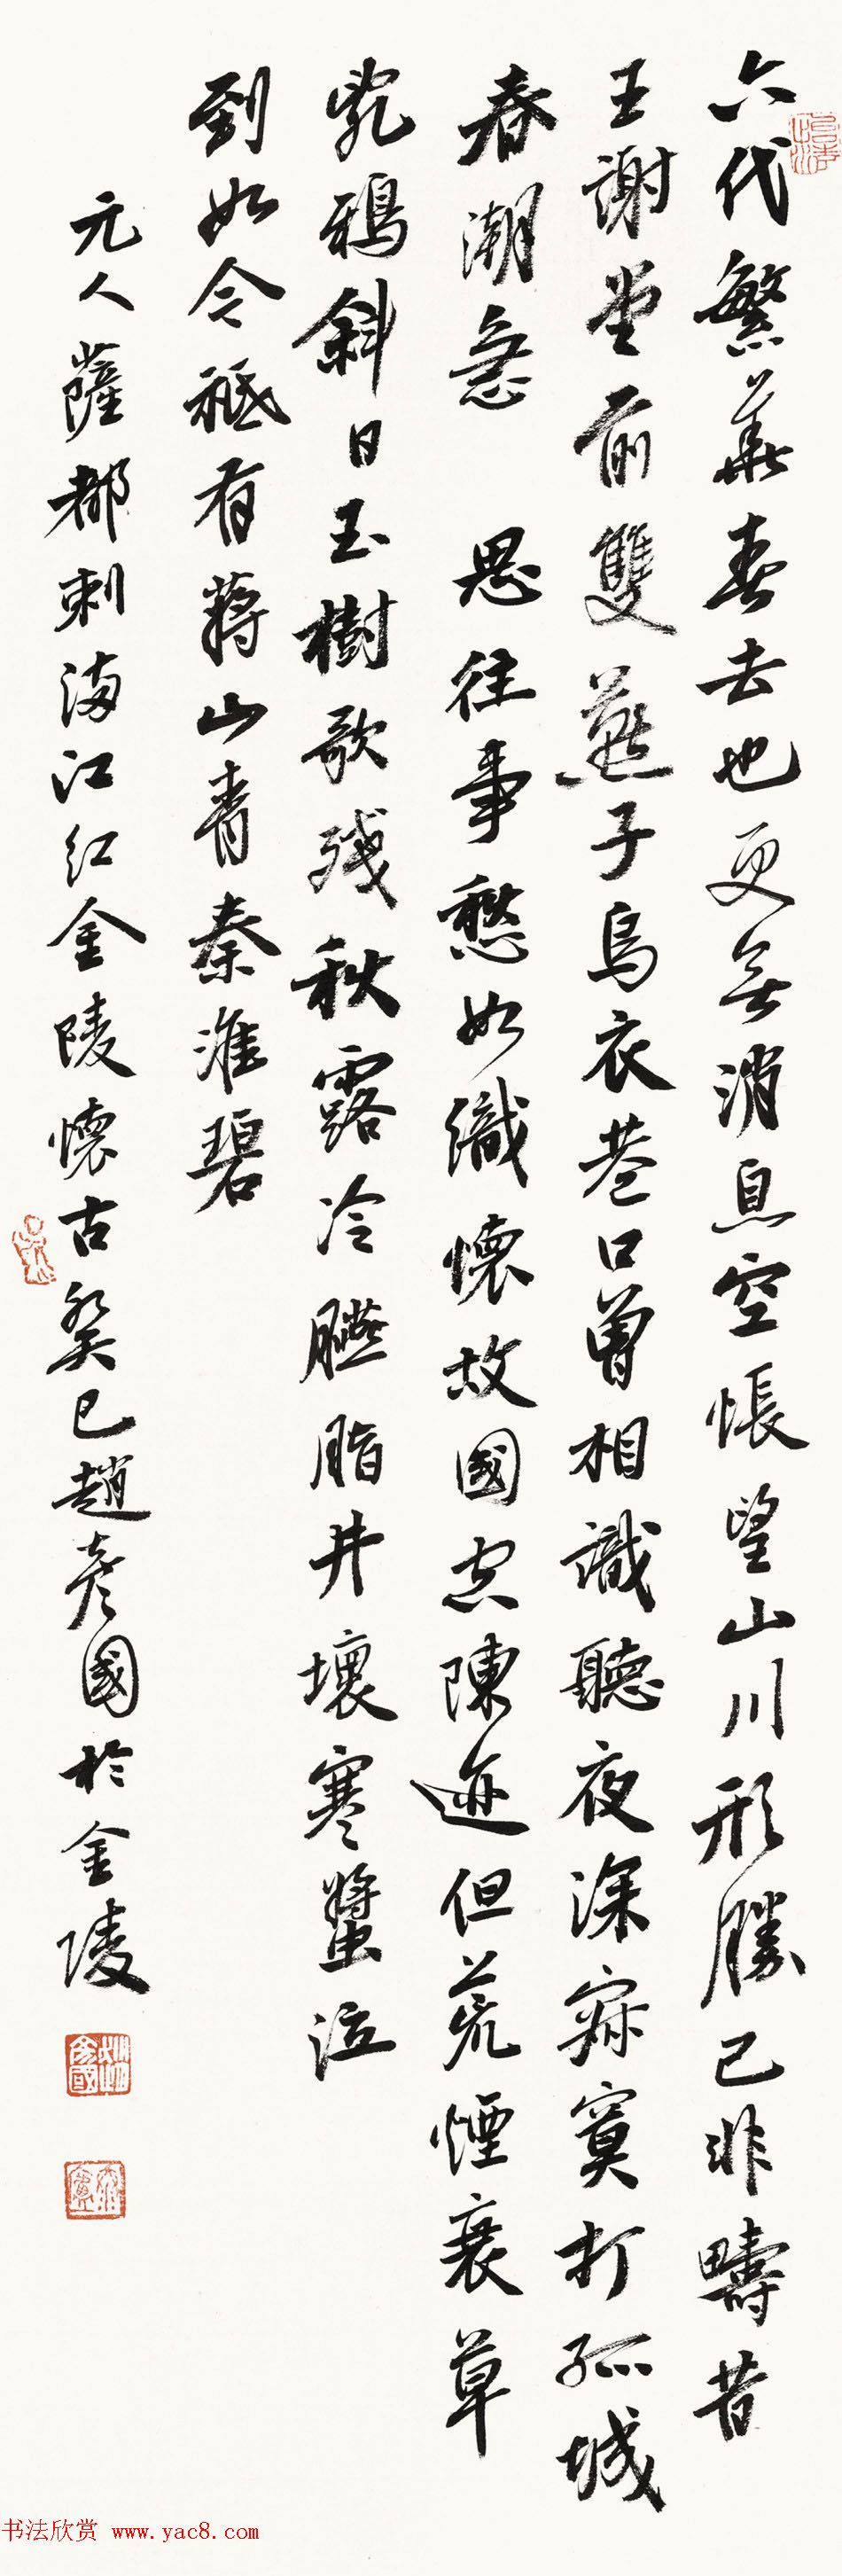 六代繁華春去也更無消息空悵望山川形勝已非疇昔
王謝堂前雙燕子烏衣巷口曾相識聽夜深寂寞打孤城
春潮急 思往事愁如織懷故國空陳迹但荒煙衰草
亂鴉斜日玉樹歌殘秋露冷臙脂井壞寒螿泣
到如今秪有蔣山青秦淮碧
元人薩都剌滿江紅金陵懷古癸巳趙彥國於金陵
书法欣赏 www.yac8.com